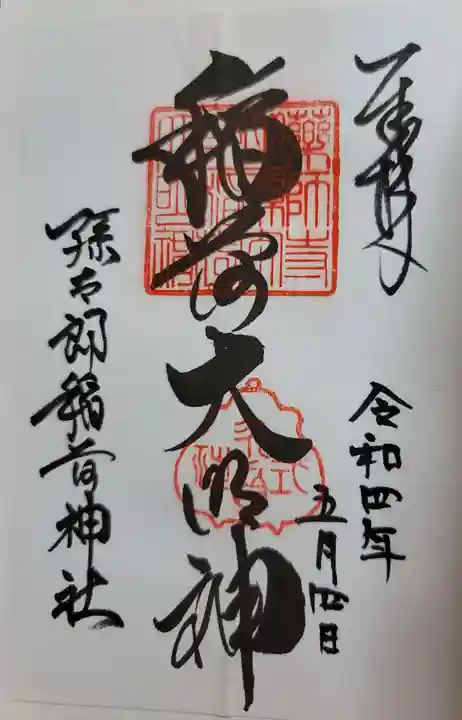 奉拝
令和四年
五月四日
稲荷大明神
孫太郎稲荷神社
薬師寺